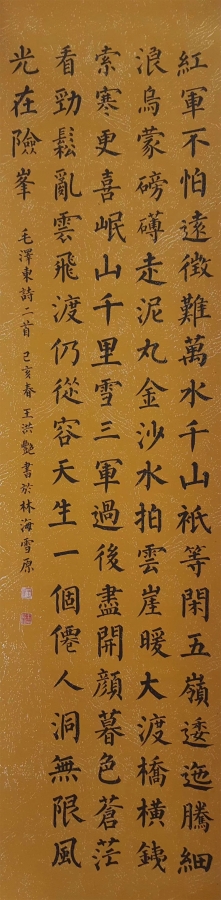 紅軍不怕遠徵難萬水千山祇等閑五嶺逶迤騰細
浪烏蒙磅礴走泥丸金沙水拍雲崖暖大渡橋橫鐵
索寒更喜岷山千里雪三軍過後盡開顏暮色蒼茫
看勁鬆亂雲飛渡仍從容天生一個僊人洞無限風
光在險峯
毛澤東詩二首 己亥春 王洪艷書於林海雪原